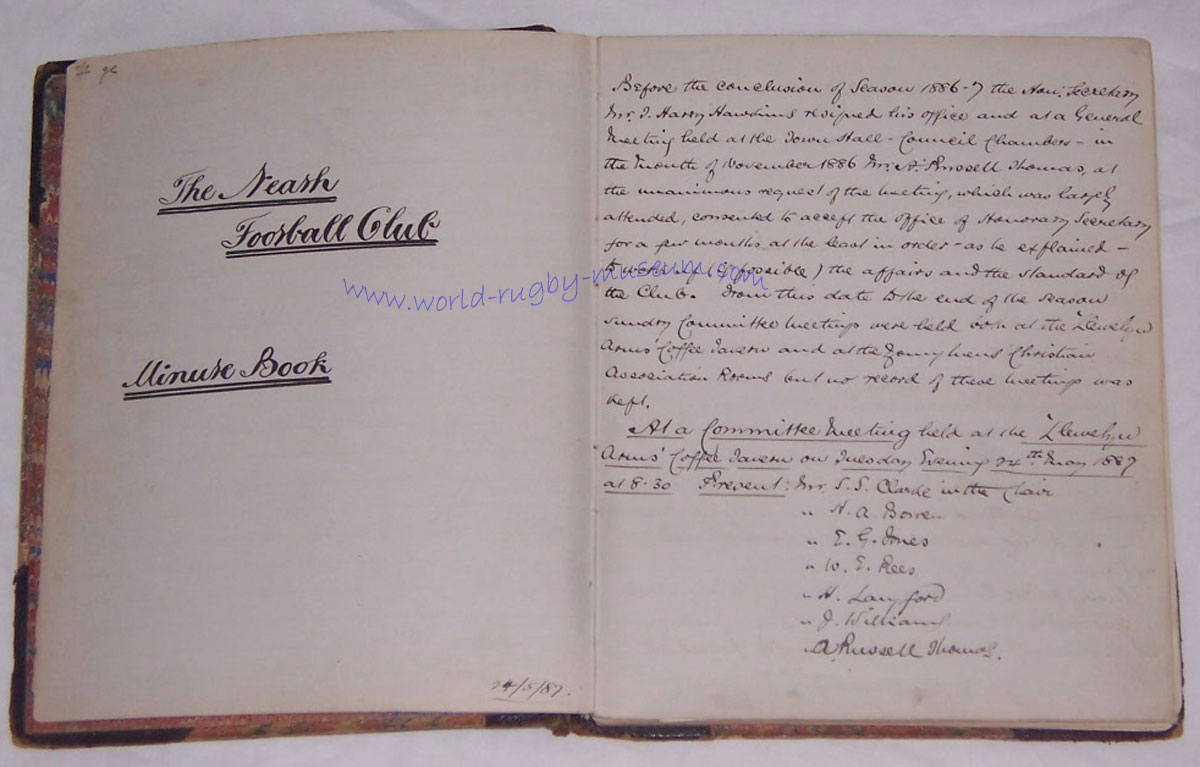 The Neath
Football Club
Minute Book
24/5/87.
Before the conclusion of Season 1886-7 the Hon. Secretary
Mr. J. Harry Hawkins resigned his office and at a General
Meeting held at the Town Hall - Council Chambers - in
the month of November 1886 Mr. A. Russell Thomas, at
the unanimous request of the meeting, which was largely
attended, consented to accept the office of Honorary Secretary
for a few months, at the least in order - as he explained -
to work up (if possible) the affairs and the standard of
the Club. From this date to the end of the season
sundry Committee Meetings were held both at the "Llewelyn
Arms" Coffee Tavern and at the Young Mens' Christian
Association Rooms but no record of these meetings was
kept.
At a Committee Meeting held at the "Llewelyn
Arms" Coffee Tavern on Tuesday Evening 24th May 1887
at 8.30 Present: Mr. S. S. Clarke in the Chair
" H. A. Bowen
" E. G. Jones
" W. E. Rees
" H. Langford
" J. Williams
" A Russell Thomas.
www.world-rugby-museum.com